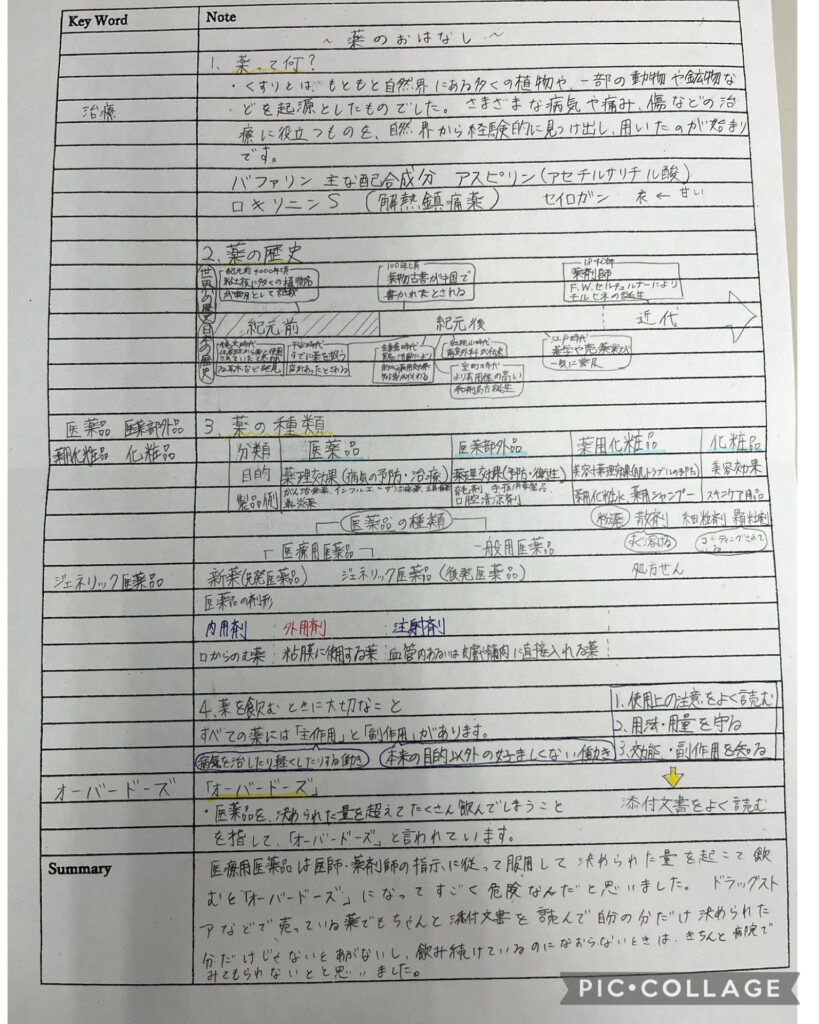 Key Word
Note
～ 薬のおはなし ～
1. 薬って何?
・くすりとは、もともと自然界にある多くの植物や、一部の動物や鉱物な
・どを起源としたものでした。さまざまな病気や痛み、傷などの治
治療
療に役立つものを、自然界から経験的に見つけ出し、用いたのが始まり
です。
バファリン 主な配合成分 アスピリン(アセチルサリチル酸)
ロキソニンS (解熱鎮痛薬) セイロガン 衣 ← 甘い
2. 薬の歴史
世界の歴史
紀元前4000年頃
粘土板に多くの植物名
100年頃
薬物古書が中国で
書かれたとされる
薬剤師
F.W.ゼルチュルナーにより
モルヒネの誕生
紀元前
紀元後
近代
日本の歴史
平安時代
すでに薬を扱う
店があったとされる
室町時代
より有用性の高い
江戸時代
薬学や売薬業が
一気に普及
医薬品 医薬部外品
薬用化粧品 化粧品
3. 薬の種類
分類 医薬品 医薬部外品 薬用化粧品 化粧品
目的 薬理効果(病気の予防・治療) 薬理効果(予防・衛生) 美容+薬理効果(肌トラブルの予防) 美容効果
製品例 がん治療薬、インフルエンザ治療薬、 育毛剤、手指消毒製品、 薬用化粧水、薬用シャンプー スキンケア用品
点鼻薬 口腔清涼剤
粉薬 散剤 細粒剤 顆粒剤
医薬品の種類
すぐ溶ける コーティングされている
医療用医薬品 一般用医薬品
ジェネリック医薬品
新薬(先発医薬品) ジェネリック医薬品(後発医薬品) 処方せん
医薬品の剤形
内用剤 外用剤 注射剤
口からのむ薬 粘膜に使用する薬 血管内あるいは皮膚や筋肉に直接入れる薬
4. 薬を飲むときに大切なこと
すべての薬には「主作用」と「副作用」があります。
病気を治したり軽くしたりする働き 本来の目的以外の好ましくない働き
1. 使用上の注意をよく読む
2. 用法・用量を守る
3. 効能・副作用を知る
添付文書をよく読む
オーバードーズ
「オーバードーズ」
・医薬品を、決められた量を超えてたくさん飲んでしまうこと
を指して、「オーバードーズ」と言われています。
Summary
医療用医薬品は医師・薬剤師の指示に従って服用して決められた量を起こて飲
むと「オーバードーズ」になってすごく危険なんだと思いました。ドラッグスト
アなどで売っている薬でもちゃんと添付文書を読んで自分の分だけ決められた
分だけじゃないとあがないし、飲み続けているのになおらないときは、きちんと病院で
みてもられないとと思いました。
PIC•COLLAGE